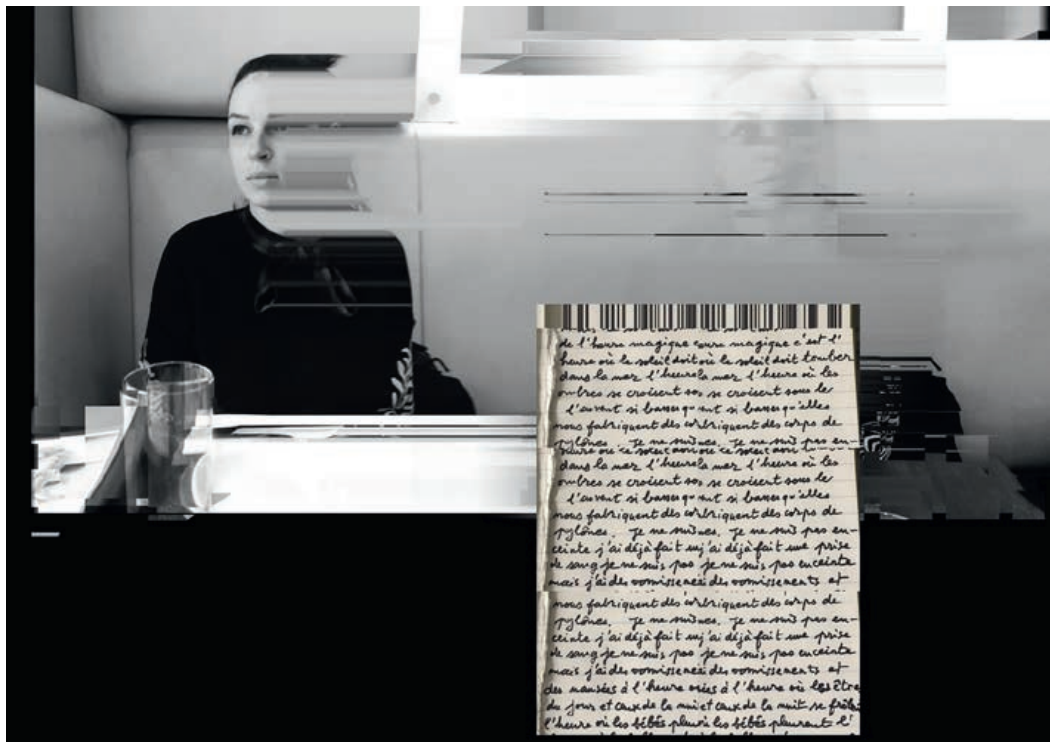 de l'heure magique eure magique c'est l'
heure où le soleil doit où le soleil doit tomber
dans la mer l'heure la mer l'heure où les
ombres se croisent so se croisent sous le
l'auvent si basses qu'ent si basses qu'elles
nous fabriquent des corbriquent des corps de
pylônes. Je ne suines. Je ne suis pas en-
dans la mer l'heure la mer l'heure où les
ombres se croisent so se croisent sous le
l'auvent si basses qu'ent si basses qu'elles
nous fabriquent des corbriquent des corps de
pylônes. Je ne suines. Je ne suis pas en-
ceinte j'ai déjà fait un j'ai déjà fait une prise
de sang je ne suis pas je ne suis pas enceinte
mais j'ai des vomissements des vomissements et
nous fabriquent des corbriquent des corps de
pylônes. Je ne suines. Je ne suis pas en-
ceinte j'ai déjà fait un j'ai déjà fait une prise
de sang je ne suis pas je ne suis pas enceinte
mais j'ai des vomissements des vomissements et
des nausées à l'heure osées à l'heure où les êtres
du jour et ceux de la nui et ceux de la nuit se frôlent
l'heure où les bébés pleurù les bébés pleurent l'